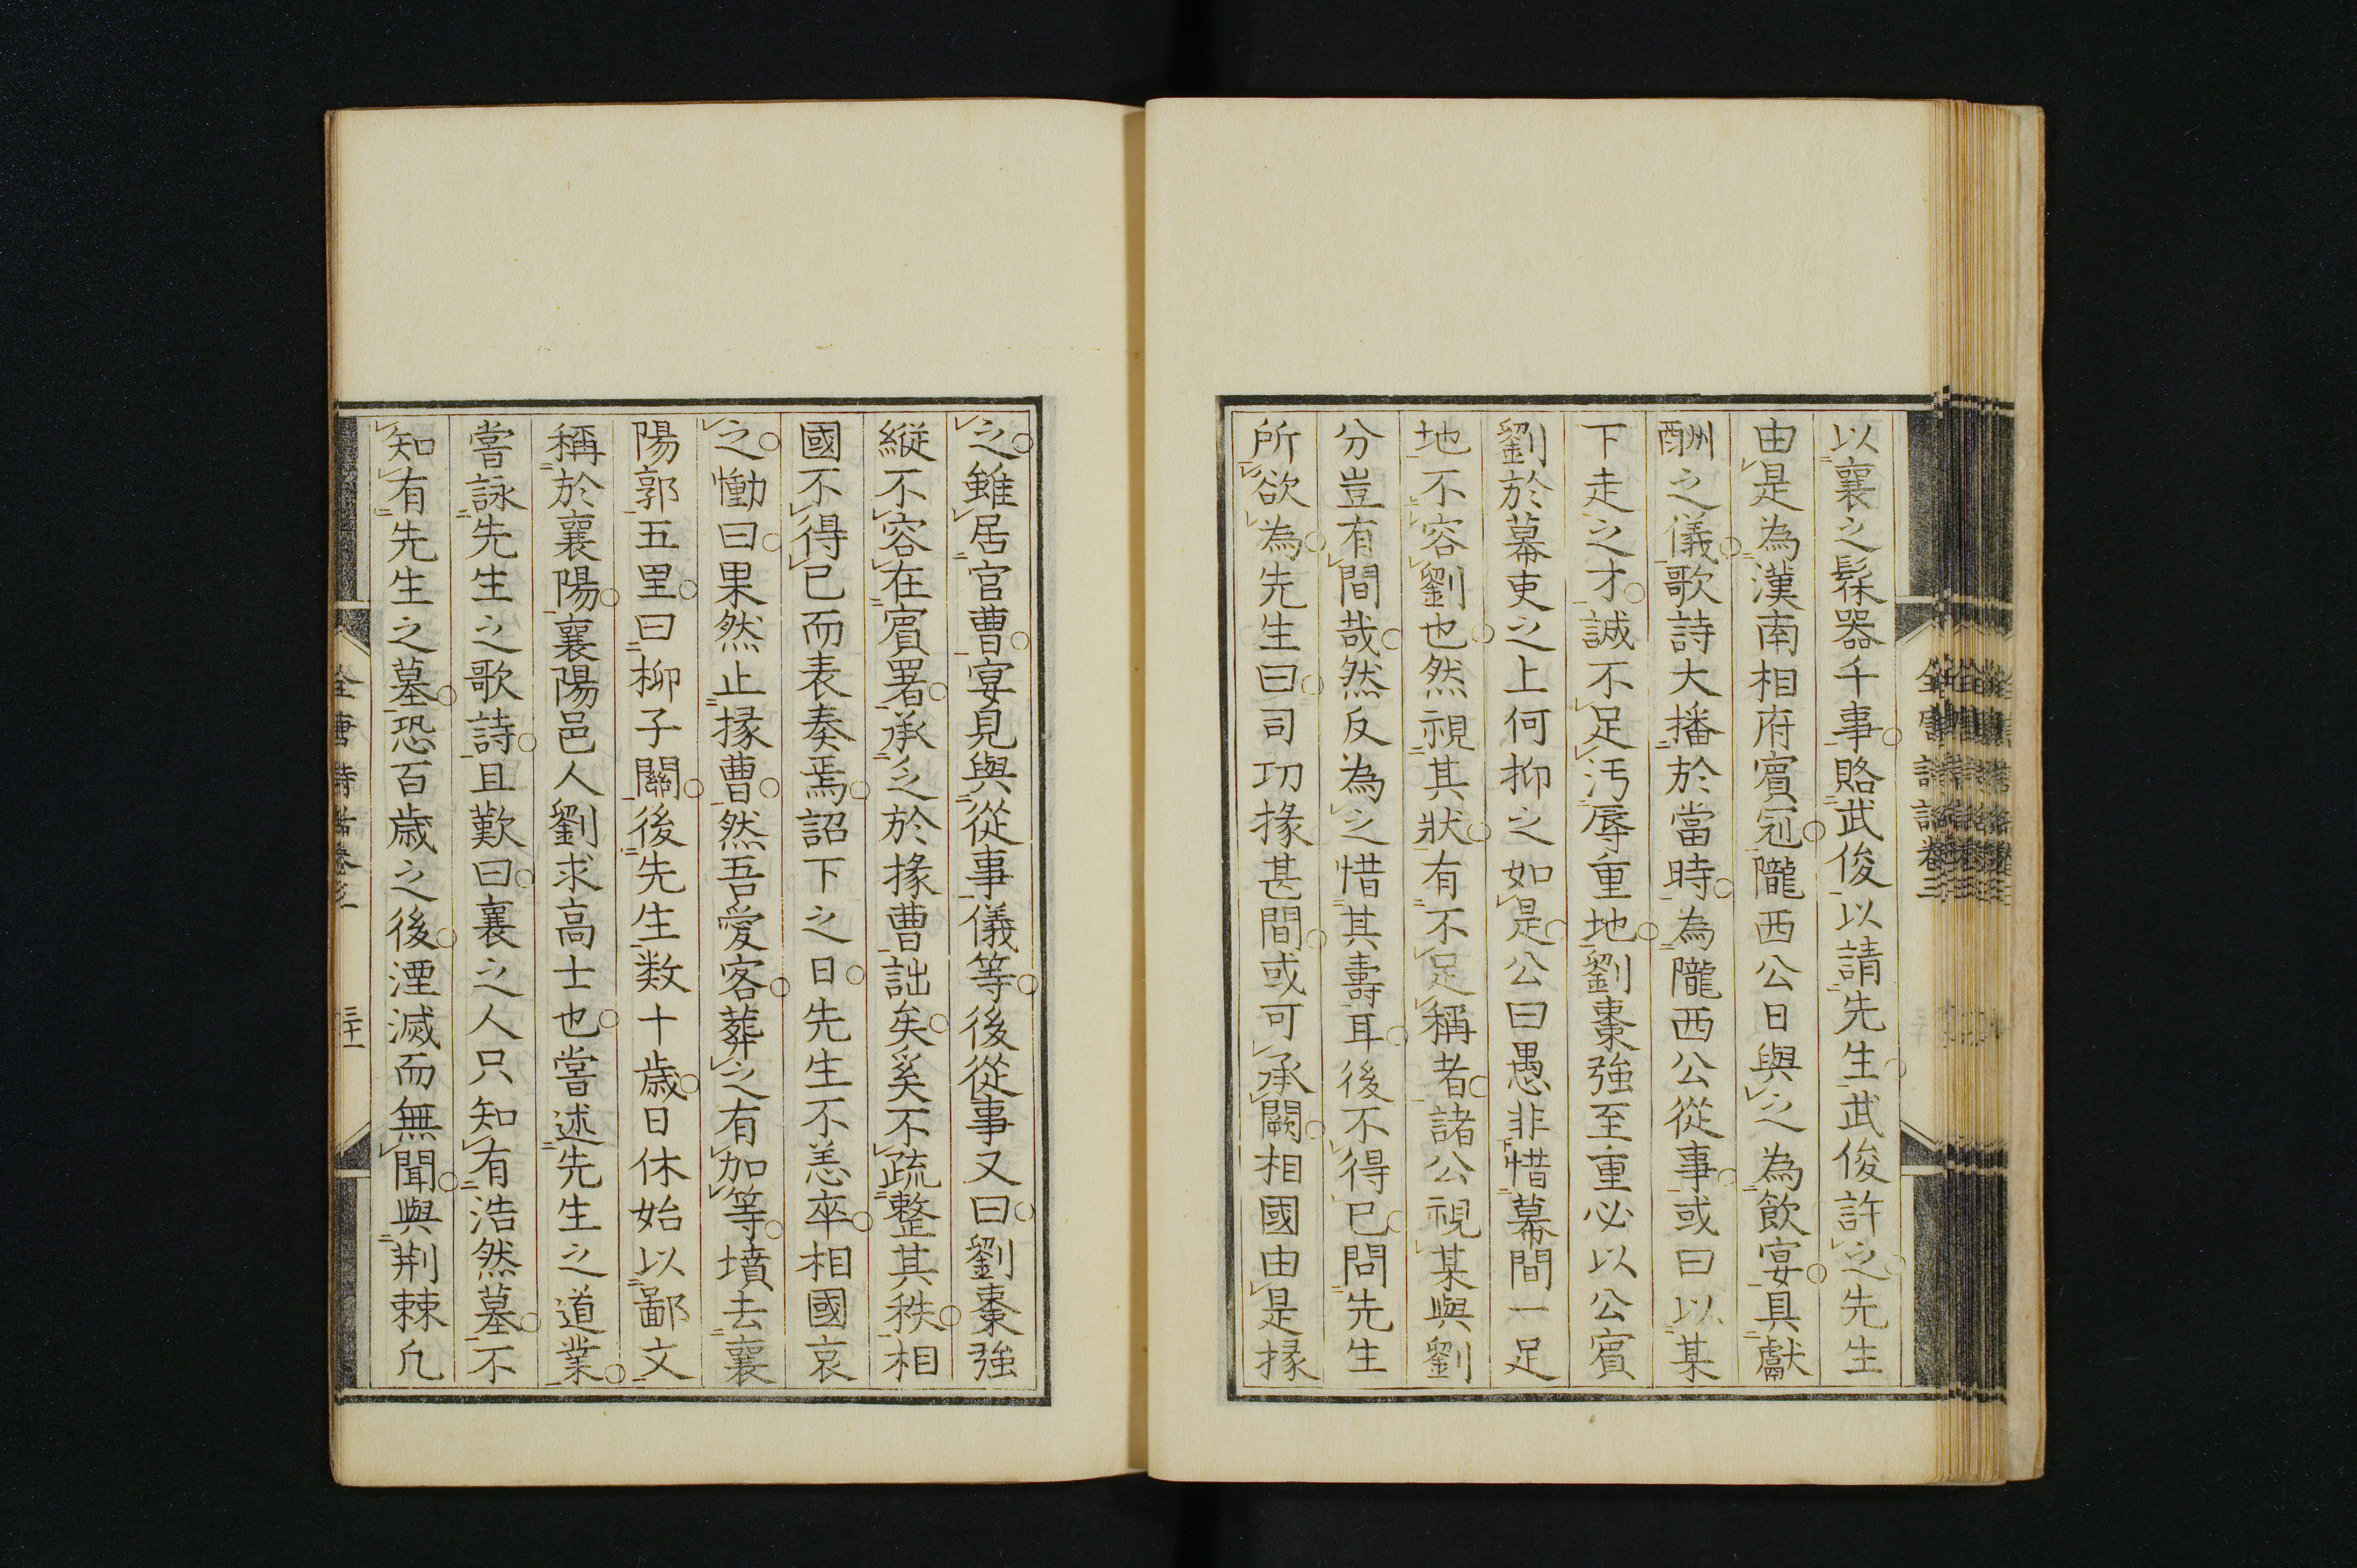 以襄之髹器千事賂武俊以請先生武俊許之先生
由是為漢南相府賓冠隴西公日與之為飲宴具獻
酬之儀歌詩大播於當時為隴西公從事或曰以某
下走之才誠不足汚辱重地劉棗強至重必以公賓
劉於幕吏之上何抑之如是公曰愚非惜幕間一足
地不容劉也然視其狀有不足稱者諸公視某與劉
分豈有間哉然反為之惜其壽耳後不得已問先生
所欲為先生曰司功掾甚間或可承闕相國由是掾
之雖居官曹宴見與從事儀等後從事又曰劉棗強
縱不容在賓署承乏於掾曹詘矣奚不疏整其秩相
國不得已而表奏焉詔下之日先生不恙卒相國哀
之慟曰果然止掾曹然吾愛客葬之有加等墳去襄
陽郭五里曰柳子關後先生数十歳日休始以鄙文
稱於襄陽襄陽邑人劉求高士也嘗述先生之道業
嘗詠先生之歌詩且歎曰襄之人只知有浩然墓不
知有先生之墓恐百歳之後湮滅而無聞與荆棘凡
全唐詩話卷三
三十一